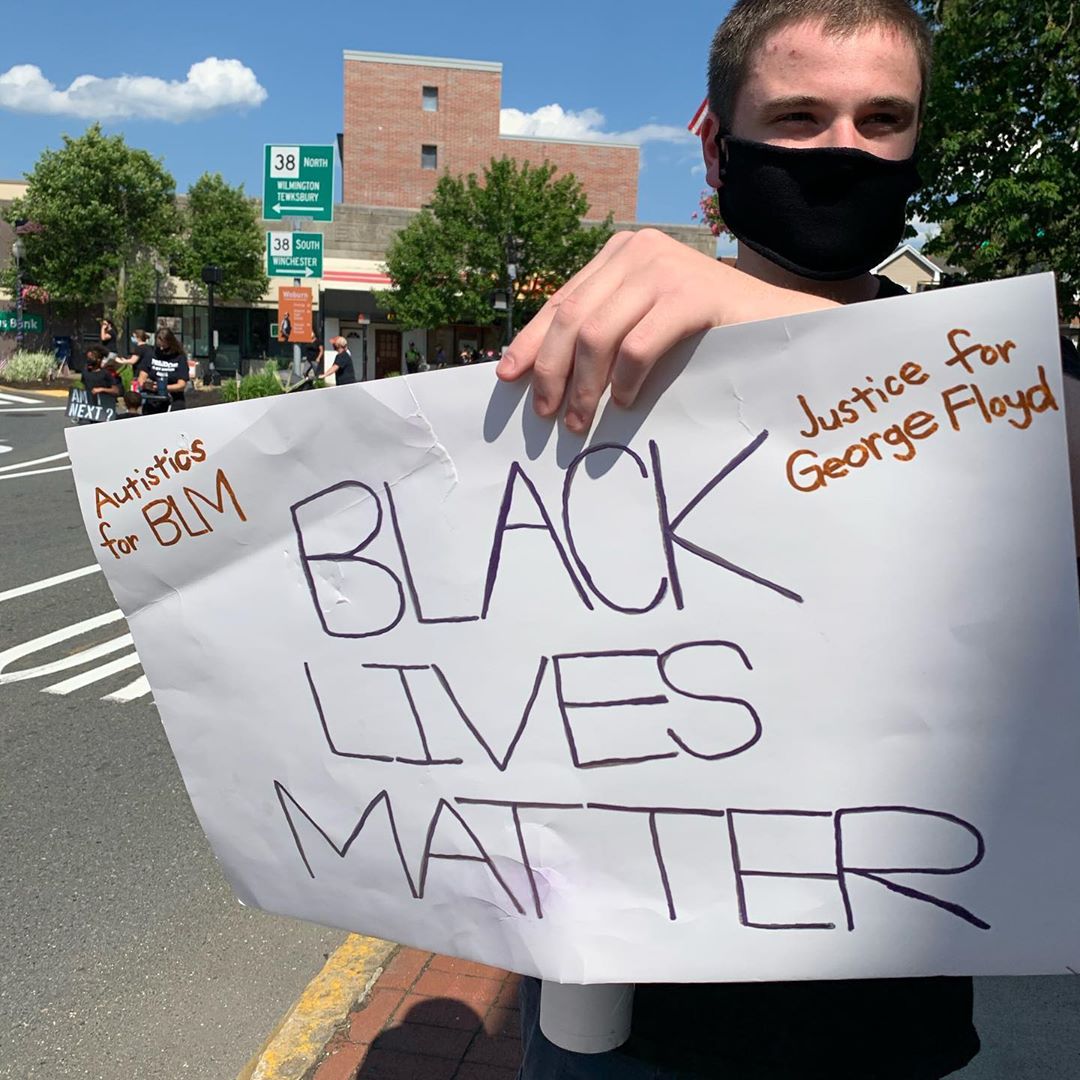 38 NORTH
WILMINGTON
TEWKSBURY
38 SOUTH
WINCHESTER
Woburn
Bank
AM
NEXT ?
Autistics
for BLM
Justice for
George Floyd
BLACK
LIVES
MATTER